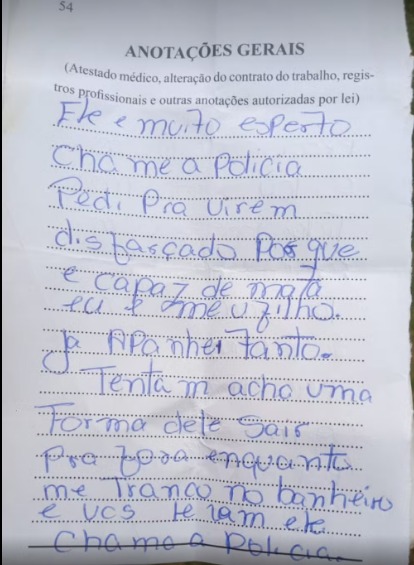 54
ANOTAÇÕES GERAIS
(Atestado médico, alteração do contrato do trabalho, regis-
tros profissionais e outras anotações autorizadas por lei)
Ele e muito esperto
Chame a Policia
Pedi Pra virem
disfarçado Porque
e capaz de mata
eu e meu filho.
Ja APanhei tanto.
Tenta m acho uma
Forma dele Sair
pra fora enquanto
me Tranco no banheiro
e vcs levam ele
Chame a Policia.